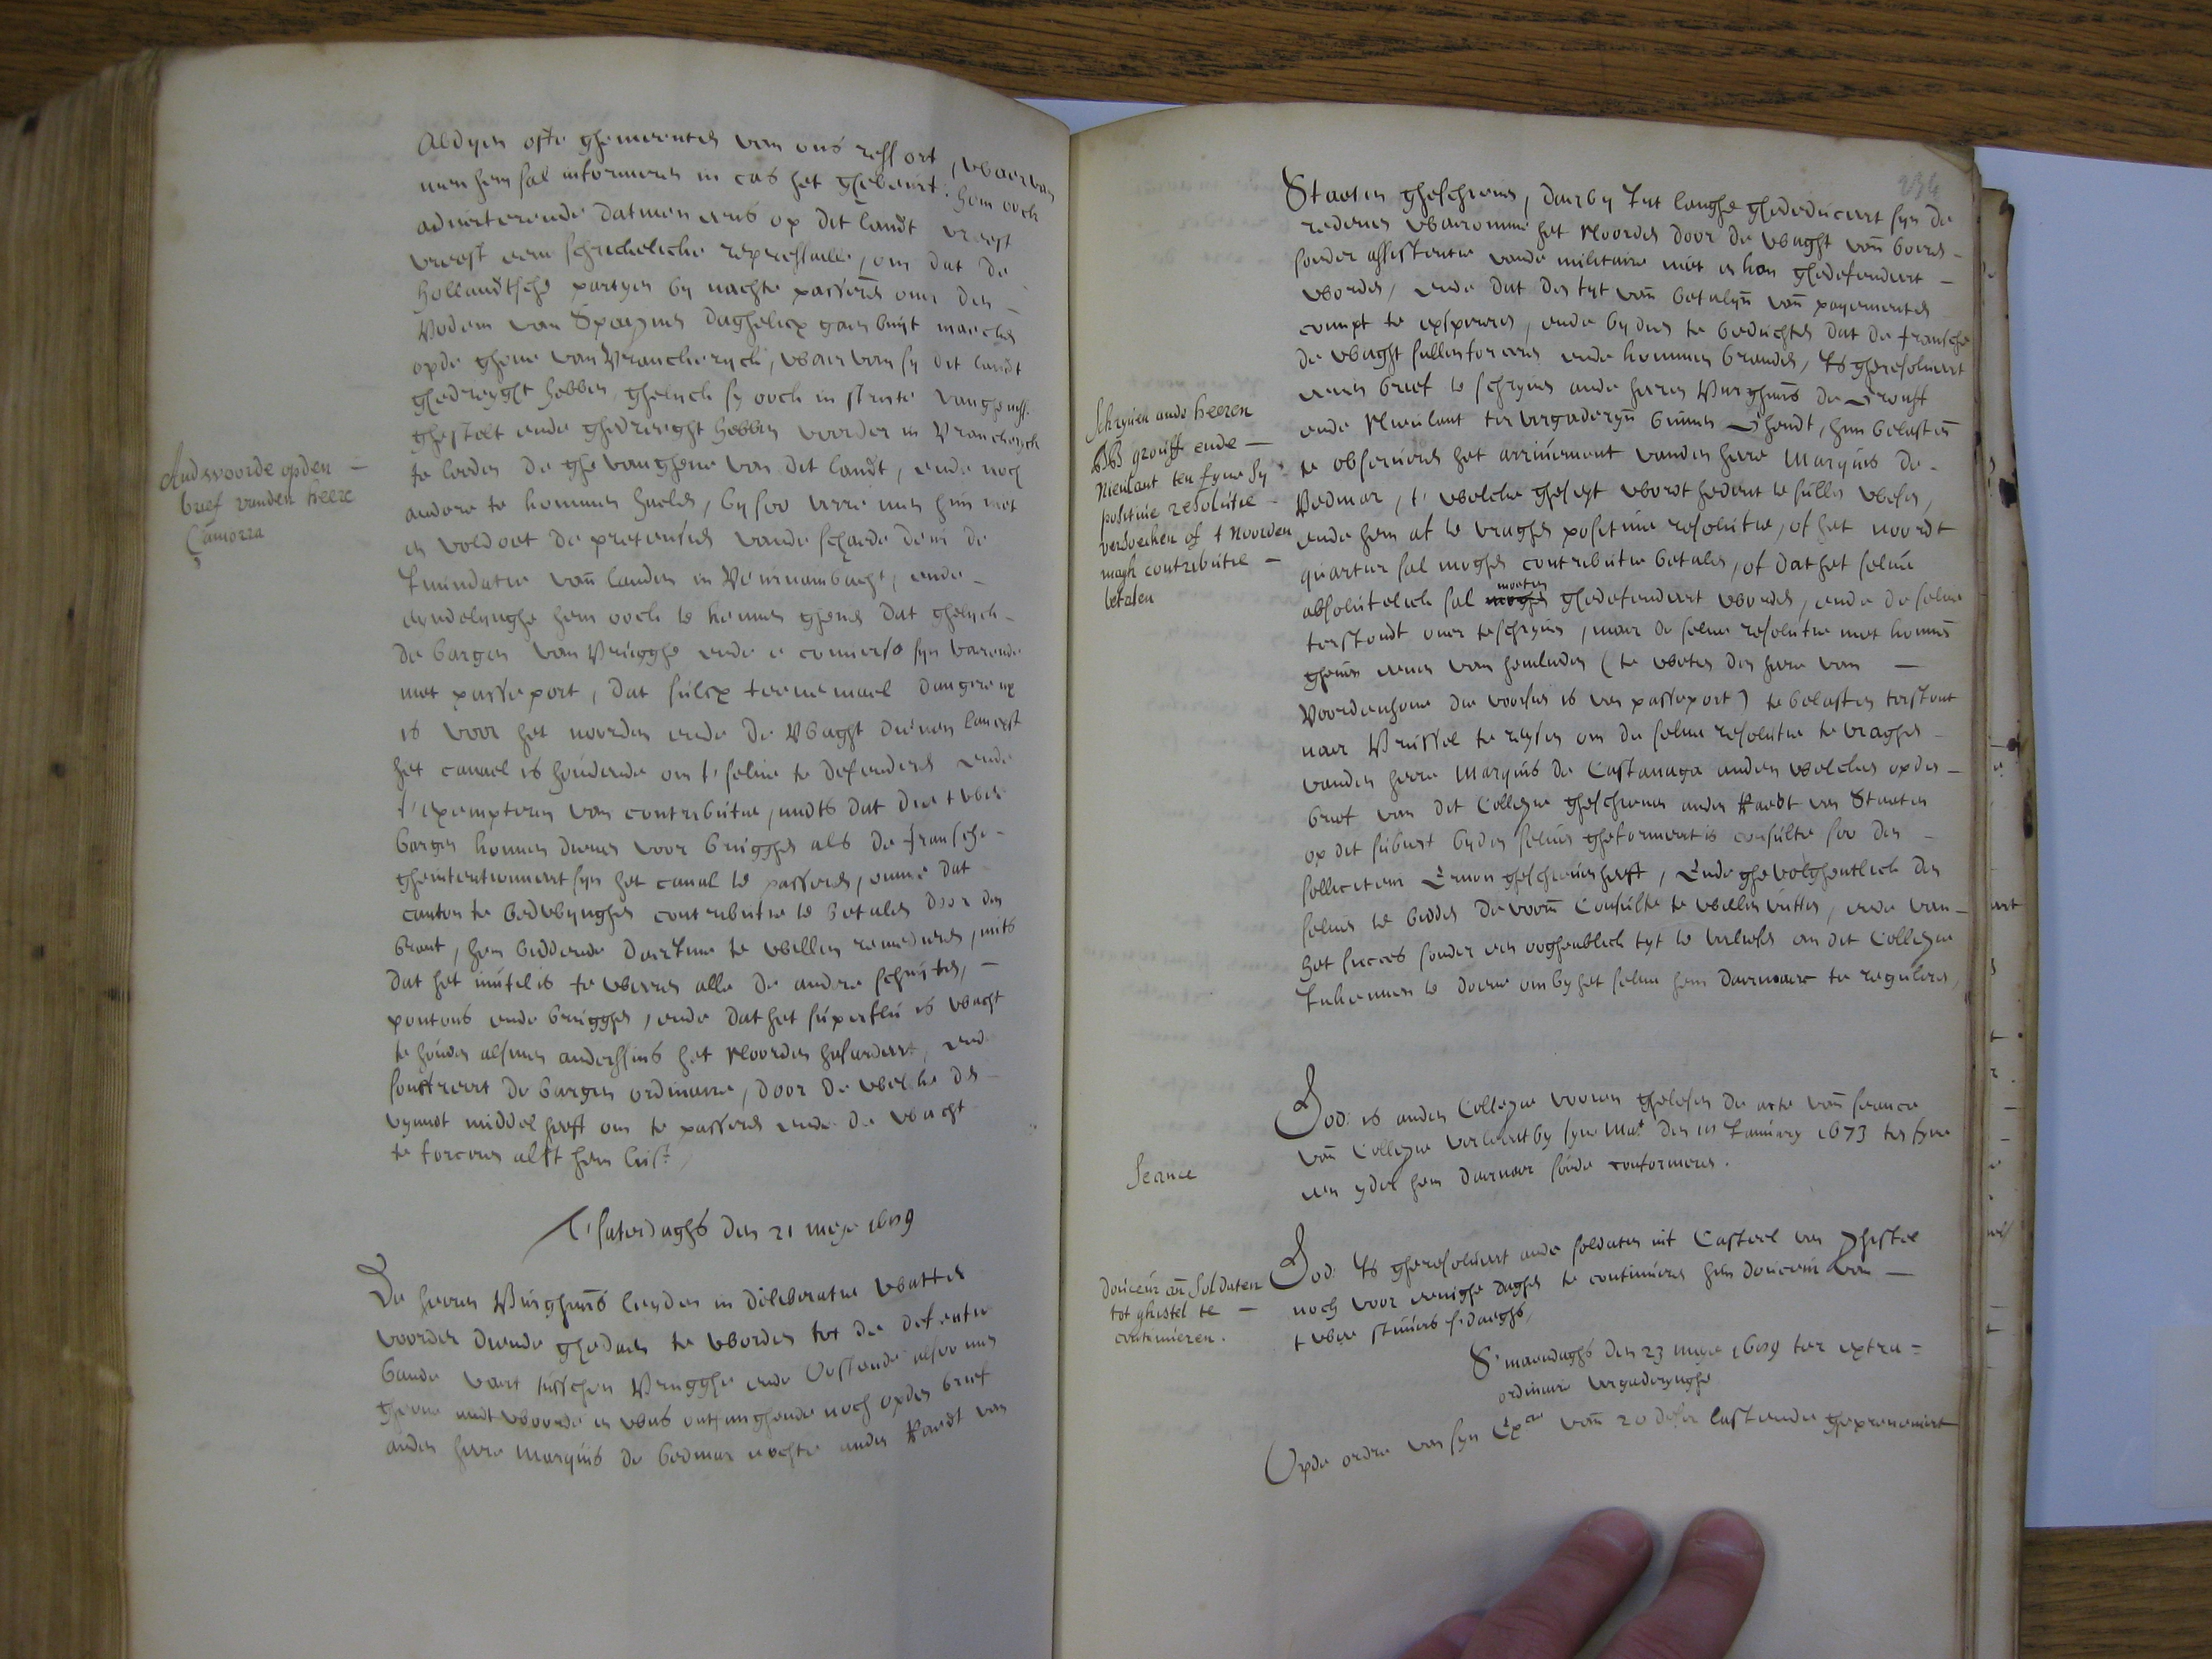 Aldyen ofte ghemeenten van ons ressort, waervan
men hem sal informeren in cas het ghebeurt. hem oock
adverterende datmen eens op dit landt
vreest eene schickeliche represaille, om dat de
hollandtsche partyen by nachte passeren om den
bodem van Spaignien daghelicx gaen buyt maecken
opde ghone van Vranckeryck, waervan sy dit landt
ghedreyght hebben, ghelyck sy oock in
ghestelt ende ghedreight hebben voorder in Vranckeryck
te leeden de ghevanghene van dit landt, ende noch
andere te kommen haelen, by soo verre men hun niet
en voldoet de pretensien vande schaede door de
Inundatie van landen in Veurnambacht, ende
eyndelynghe hem oock te kennen gheven dat ghelyck
de bargen van Brugghe ende e converso syn varende
met passeport, dat sulcx teenemael dangereux
is voor het noorden ende de Wacht diemen lancxst
het canael is houdende om t' selve te defenderen ende
t' exempteren van contributie, mits dat die twee
bargen konnen dienen voor brugghen als de fransche
gheintentionneert syn het canal te passeren, omme dat
canton te bedwynghen contributie te betalen door den
brant, hem biddende daerinne te willen remedieren, mits
dat het inutel is te weeren alle de andere schuyten,
pontons ende brugghen, ende dat het superflu is wacht
te houden alsmen anderssins het Noorden hasardeert, ende
de bargen ordinaire, door de welcke den
vyandt middel heeft om te passeren ende de wacht
te forceren alst hem lust.
Andtwoorde opden
brief vanden heere
Camorra
T' saterdaghs den 21 meye 1689
De heeren Burghmrs leyden in deliberatie watter
voorder diende ghedaen te worden tot de defentie
vande vaert tusschen Brugghe ende Oostende alsoo men
gheene andtwoorde en was ontfanghende noch opden brief
anden heere Marquis de bedmar nochte anden Raedt van
234
Staeten gheschreven, daerby Int langhe ghededuceert syn de
redenen waeromme het Noorden door de wacht van boeren
sonder assistentie vande militaire niet en kan ghedefendeert
worden, ende dat den tyt van betalyn van payementen
compt te expireren, ende by dien te beduchten dat de fransche
de wacht sullen forceren ende kommen branden, Is gheresolveert
eenen brief te schryven ande heeren Burghmrs de Grouff
ende Nieulant ter vergaderyn binnen Ghendt, hun belasten
te observeren het arrivement vanden heere Marquis de
Bedmar, t' welcke gheseyt wordt hedent te sullen wesen,
ende hem af te vraghen positive resolutie, of het noordt
quartier sal moghen contributie betalen, of dat het selve
absolutelick sal moeten ghedefendeert worden, ende de selve
terstondt over te schryven, maer de selve resolutie niet konnen
gheven eenen van hemlieden (te weten den heere van
Voordenhove die voorsien is van passeport) te belasten terstont
naer Brussel te reysen om de selve resolutie te vraghen
vanden heere Marquis de Castanaga anden welcken opden
brief van dit Collegie gheschreven anden Raedt van Staeten
op dit subiect byden selven gheformeert is consulte soo den
solliciteur Ernon gheschreven heeft, Ende ghevolghentlick den
selven te bidden de voorn Consulte te willen uutten, ende van
het succes sonder een ooghenblick tyt te verliesen an dit Collegie
Inkennen te doene om by het selve hem daernaer te reguleren,
Schryven ande heeren
BB grouff ende
Nieulant ten fyne sy
positive resolutie
versoecken of t Noorden
magh contributie
betalen
Eod: is anden Collegie vooren ghelesen de acte van seance
van Collegie verleent by syne Mat den 10 January 1673 ten fyne
een yder hem daernaer soude conformeren.
Seance
Eod: Is gheresolveert ande soldaten int Casteel van Ghistel
noch voor eenighe daghen te continueren hun douceur van
twee stuvers sdaeghs,
douceur an Soldaten
tot ghistel te
continuieren.
S' maendaghs den 23 meye 1689 ter extra=
ordinaire vergaderynghe
Opde ordre van syn Excie van 20 deser lastende ghepreneniert